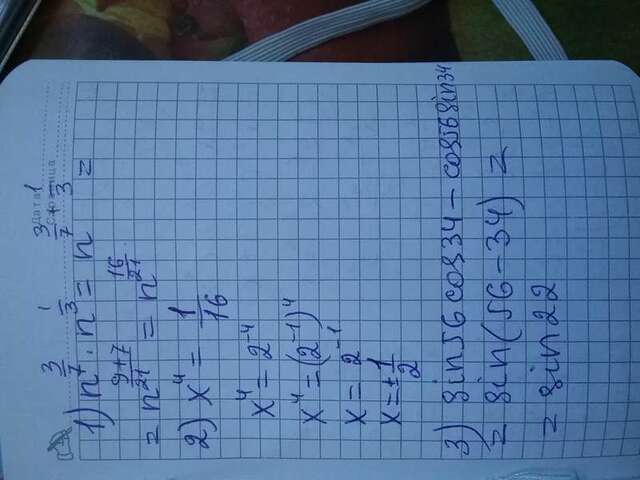 Дата
Страница
1) n^(3/7) · n^(1/3) = n^(3/7 + 1/3) =
= n^((9+7)/21) = n^(16/21)
2) x^4 = 1/16
x^4 = 2^(-4)
x^4 = (2^(-1))^4
x = 2^(-1)
x = ± 1/2
3) sin56cos34 - cos56sin34
= sin(56 - 34) =
= sin22